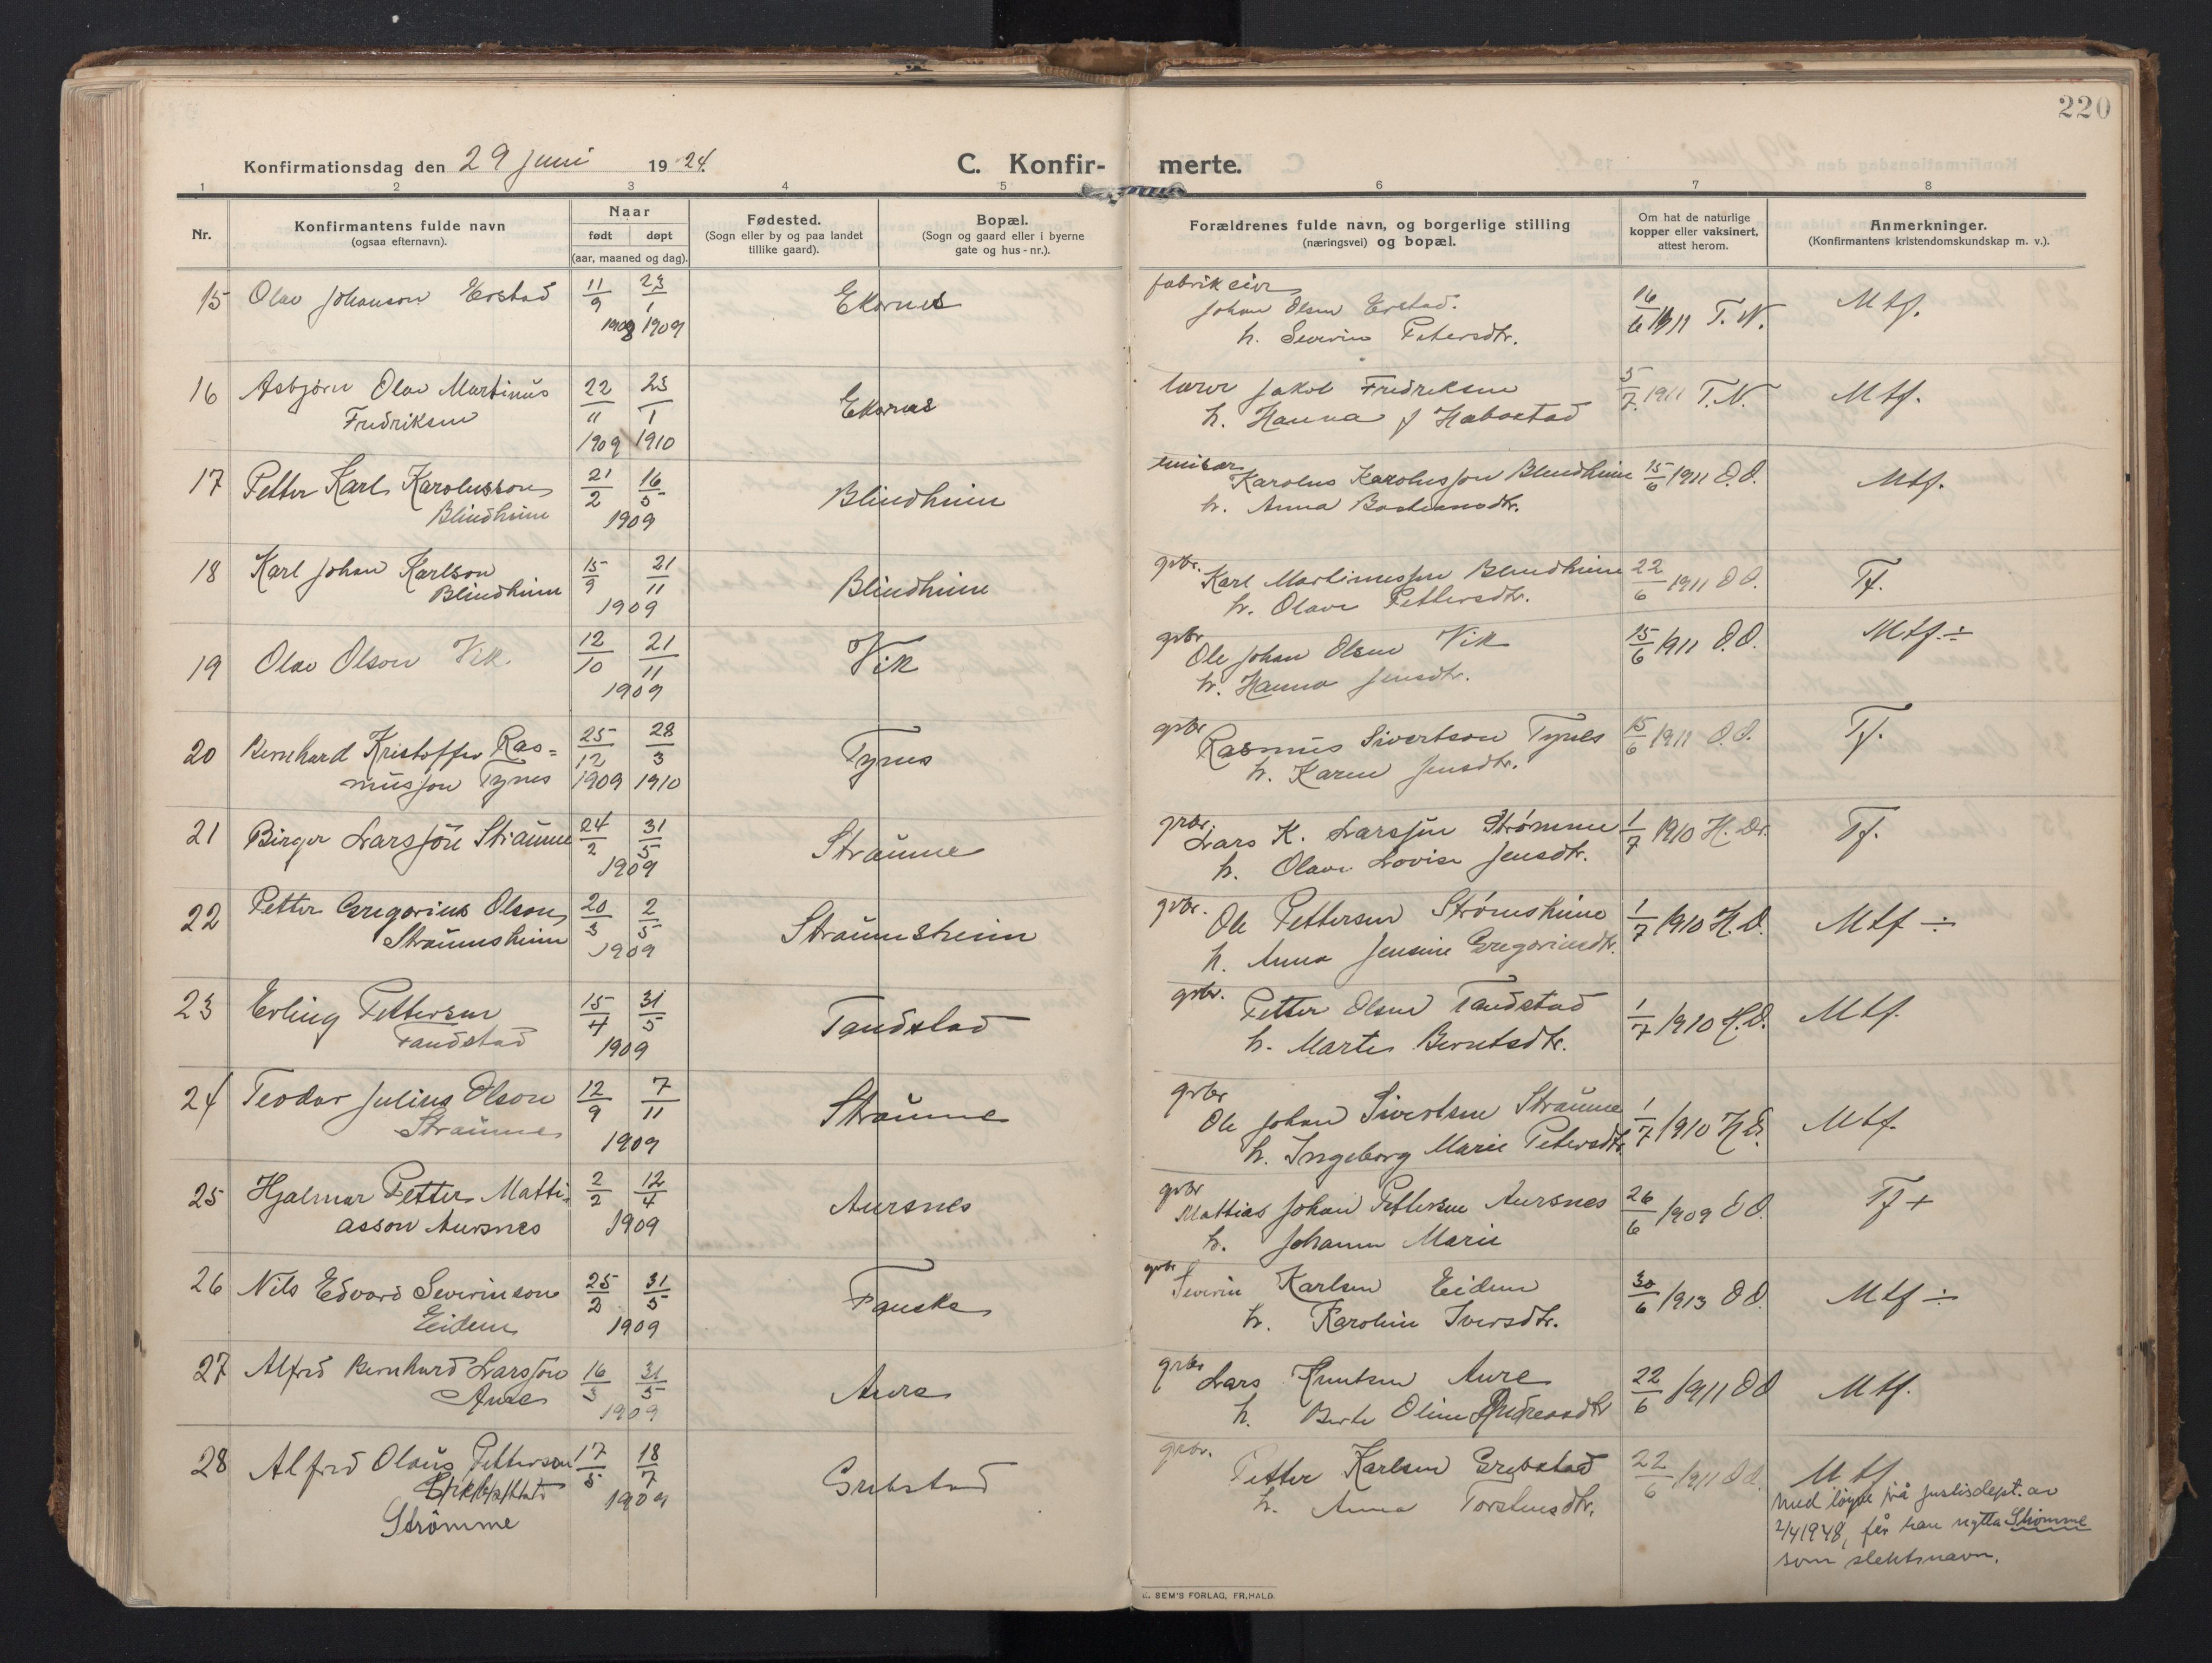 220
Konfirmationsdag den 29 juni 1924.
C. Konfir- merte.
1 2 3 4 5 6 7 8
Nr.
Konfirmantens fulde navn
(ogsaa efternavn).
Naar
født døpt
(aar, maaned og dag).
Fødested.
(Sogn eller by og paa landet
tillike gaard).
Bopæl.
(Sogn og gaard eller i byerne
gate og hus-nr.).
Forældrenes fulde navn, og borgerlige stilling
(næringsvei) og bopæl.
Om hat de naturlige
kopper eller vaksinert,
attest herom.
Anmerkninger.
(Konfirmantens kristendomskundskap m. v.).
15 Olav Johanson Erstad 11/9 1908 23/1 1909 Ekornes
fabrikeier
Johan Olsen Erstad.
h. Severine Petersdtr.
16/6 1911 T. N. Mtf.
16 Asbjørn Olav Martinus
Fredriksen
22/11 1909 23/1 1910 Ekornes
lærer Jakob Fredriksen
h. Hanna J Habostad
5/7 1911 T. N. Mtf.
17 Petter Karl Karolusson
Blindheim
21/2 16/5 1909 Blindheim
Karolus Karolusson Blindheim
h. Anna Bastiansdtr.
15/6 1911 O.O. Mtf.
18 Karl Johan Karlson
Blindheim
15/9 21/11 1909 Blindheim
grbr. Karl Martinussen Blindheim
h. Olave Pettersdtr.
22/6 1911 O O. Tf.
19 Olav Olson Vik. 12/10 21/11 1909 Vik
grbr Ole Johan Olsen Vik
h. Hanna Jensdtr.
15/6 1911 O.O. Mtf. ÷
20 Bernhard Kristoffer Ras=
musson Tynes
25/12 1909 28/3 1910 Tynes
grbr Rasmus Sivertson Tynes
h. Karen Jensdtr.
15/6 1911 O.O. Tf.
21 Birger Larsson Straume 24/2 31/5 1909 Straume
grbr. Lars K. Larssen Strømme
h. Olave Lovise Jensdtr.
1/7 1910 H. D. Tf.
22 Petter Gregorius Olson
Straumsheim
20/3 2/5 1909 Straumsheim
grbr. Ole Pettersen Strømsheim
h. Anna Jensine Gregoriusdtr.
1/7 1910 H. D. Mtf ÷
23 Erling Pettersen
Tandstad
15/4 31/5 1909 Tandstad
grbr. Petter Olsen Tandstad
h. Marte Berntsdtr.
1/7 1910 H. D. Mtf.
24 Teodor Julius Olson
Straume
12/9 7/11 1909 Straume
grbr Ole Johan Sivertsen Straume
h. Ingeborg Marie Petersdtr.
1/7 1910 H D. Mtf.
25 Hjalmar Petter Matti-
asson Aursnes
2/2 12/4 1909 Aursnes
grbr Mattias Johan Pettersen Aursnes
h. Johanne Marie
26/6 1909 O O. Tf +
26 Nils Edvard Severinson
Eidem
25/2 31/5 1909 Fauske
grbr Severin Karlsen Eidem
h. Karoline Iversdtr.
30/6 1913 O O. Mtf ÷
27 Alfred Bernhard Larsson
Aure
16/3 31/5 1909 Aure
grbr Lars Knutsen Aure
h. Berte Oline Andreasdtr
22/6 1911 O O Mtf.
28 Alfred Olaus Petterson
Strömme
17/5 18/7 1909 Grebstad
grbr. Petter Karlsen Grebstad
h. Anna Torstensdtr.
22/6 1911 O O. Mtf
med løyve frå Justisdept. av
2/4 1948, får han nytta Strömme
som slektsnavn.
E. SEM'S FORLAG, FR.HALD.